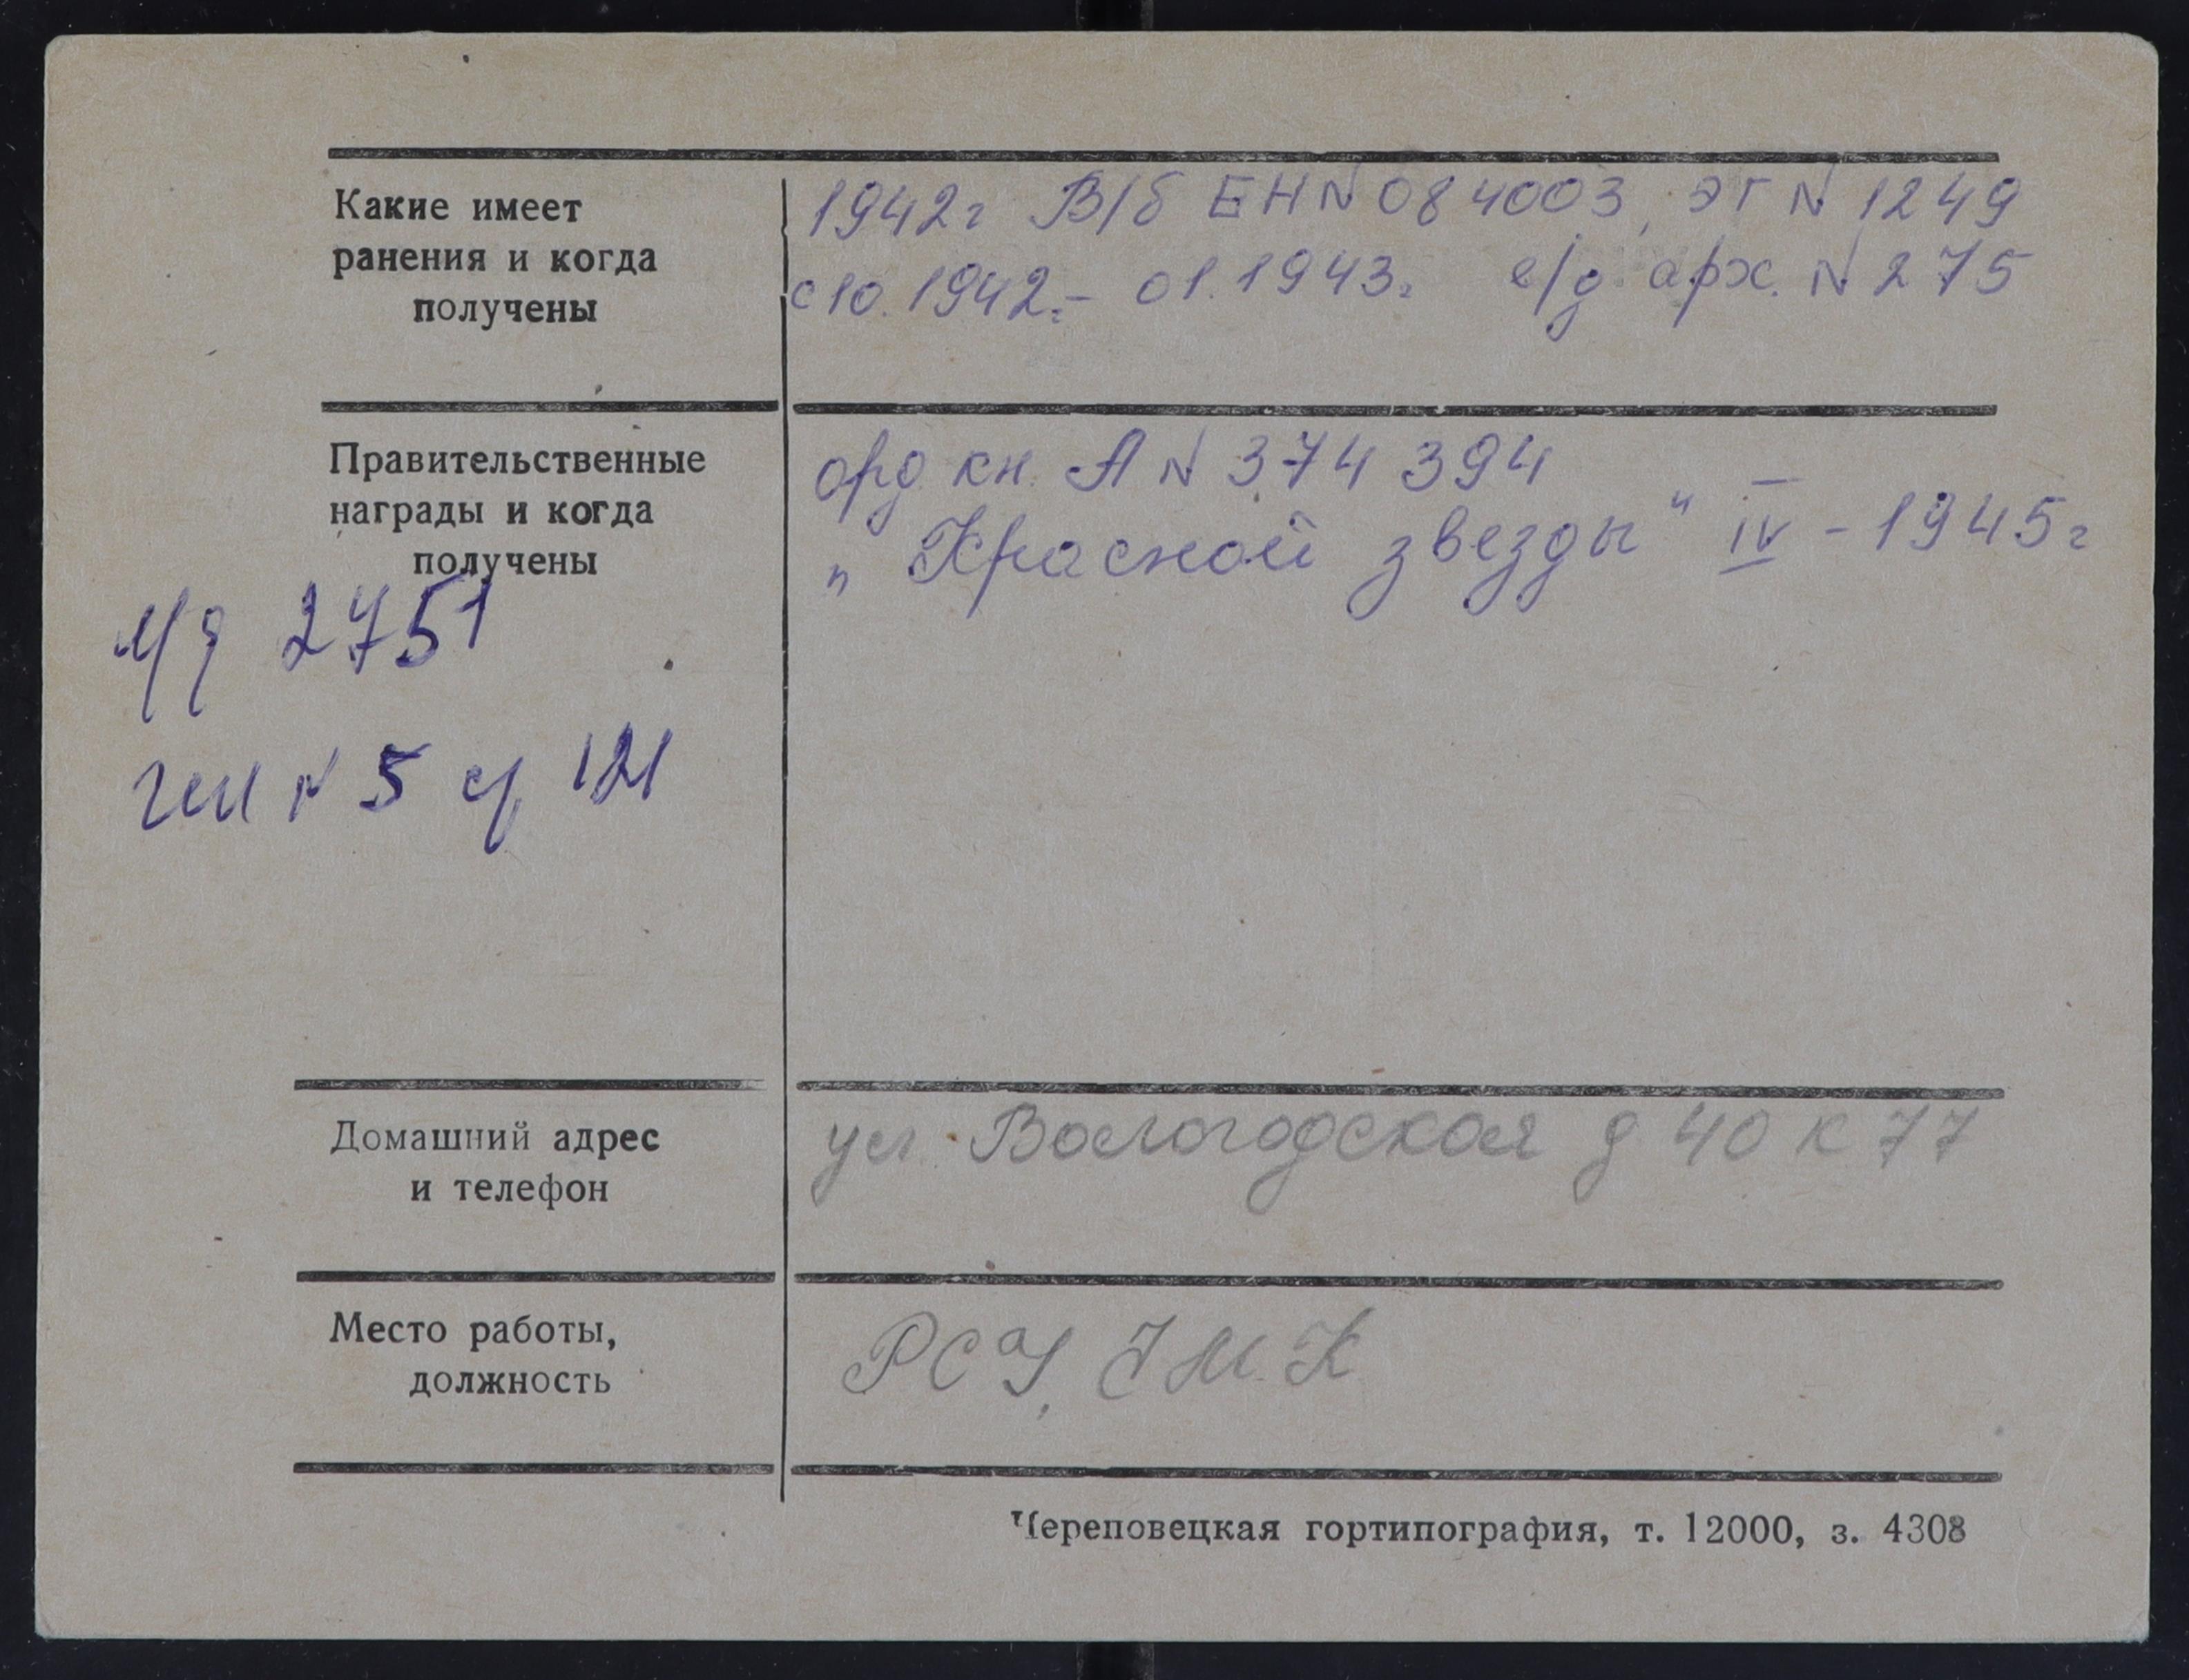 Какие имеет
ранения и когда
получены
1942г В/б ЕН N 084003, ЭГ N 1249
с 10.1942г - 01.1943г е/д арх. N 275
Правительственные
награды и когда
получены
орд. кн. А N 374394
„Красной звезды" IV - 1945г
2751
N 5 121
Домашний адрес
и телефон
ул. Вологодская д 40 к 77
Место работы,
должность
РСУ, ЧМК
Череповецкая гортипография, т. 12000, з. 4308